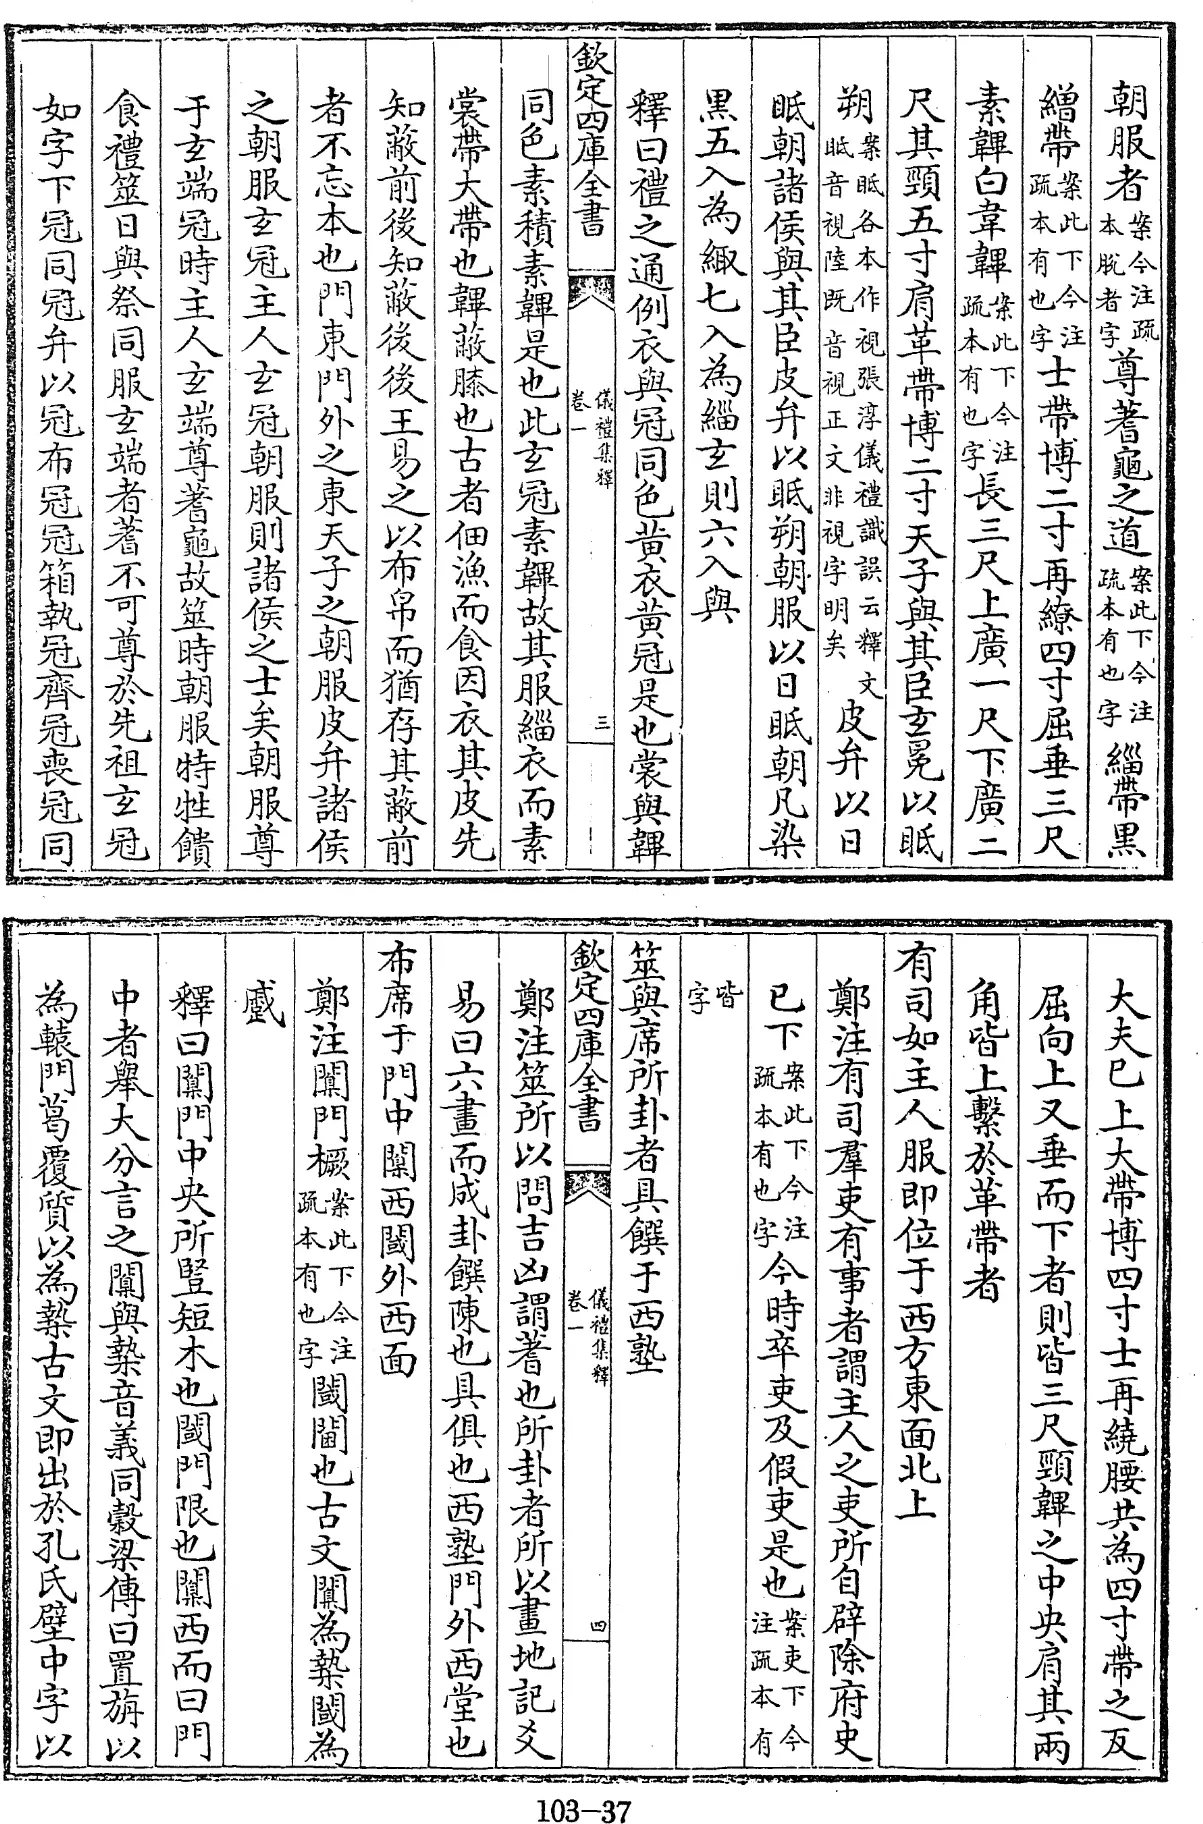 朝服者案今注疏本脫者字尊蓍龜之道案此下今注疏本有也字緇帶黑
繒帶案此下今注疏本有也字士帶博二寸再繚四寸屈垂三尺
素韠白韋韠案此下今注疏本有也字長三尺上廣一尺下廣二
尺其頸五寸肩革帶博二寸天子與其臣玄冕以眡
朔案眡各本作視張淳儀禮識誤云釋文眡音視陸既音視正文非視字明矣皮弁以日
眡朝諸侯與其臣皮弁以眡朔朝服以日眡朝凡染
黑五入為緅七入為緇玄則六入與
釋曰禮之通例衣與冠同色黄衣黄冠是也裳與韠
欽定四庫全書
儀禮集釋
卷一
三
同色素積素韠是也此玄冠素韠故其服緇衣而素
裳帶大帶也韠蔽膝也古者佃漁而食因衣其皮先
知蔽前後知蔽後後王易之以布帛而猶存其蔽前
者不忘本也門東門外之東天子之朝服皮弁諸侯
之朝服玄冠主人玄冠朝服則諸侯之士矣朝服尊
于玄端冠時主人玄端尊蓍龜故筮時朝服特牲饋
食禮筮日與祭同服玄端者蓍不可尊於先祖玄冠
如字下冠同冠弁以冠布冠冠箱執冠齊冠喪冠同
大夫已上大帶博四寸士再繞腰共為四寸帶之反
屈向上又垂而下者則皆三尺頸韠之中央肩其兩
角皆上繫於革帶者
有司如主人服即位于西方東面北上
鄭注有司羣吏有事者謂主人之吏所自辟除府史
已下案此下今注疏本有也字今時卒吏及假吏是也案吏下今注疏本有
皆字
筮與席所卦者具饌于西塾
欽定四庫全書
儀禮集釋
卷一
四
鄭注筮所以問吉凶謂蓍也所卦者所以畫地記爻
易曰六畫而成卦饌陳也具俱也西塾門外西堂也
布席于門中闑西閾外西面
鄭注闑門橛案此下今注疏本有也字閾閫也古文闑為槷閾為
蹙
釋曰闑門中央所豎短木也閾門限也闑西而曰門
中者舉大分言之闑與槷音義同穀梁傳曰置旃以
為轅門葛覆質以為槷古文即出於孔氏壁中字以
103-37